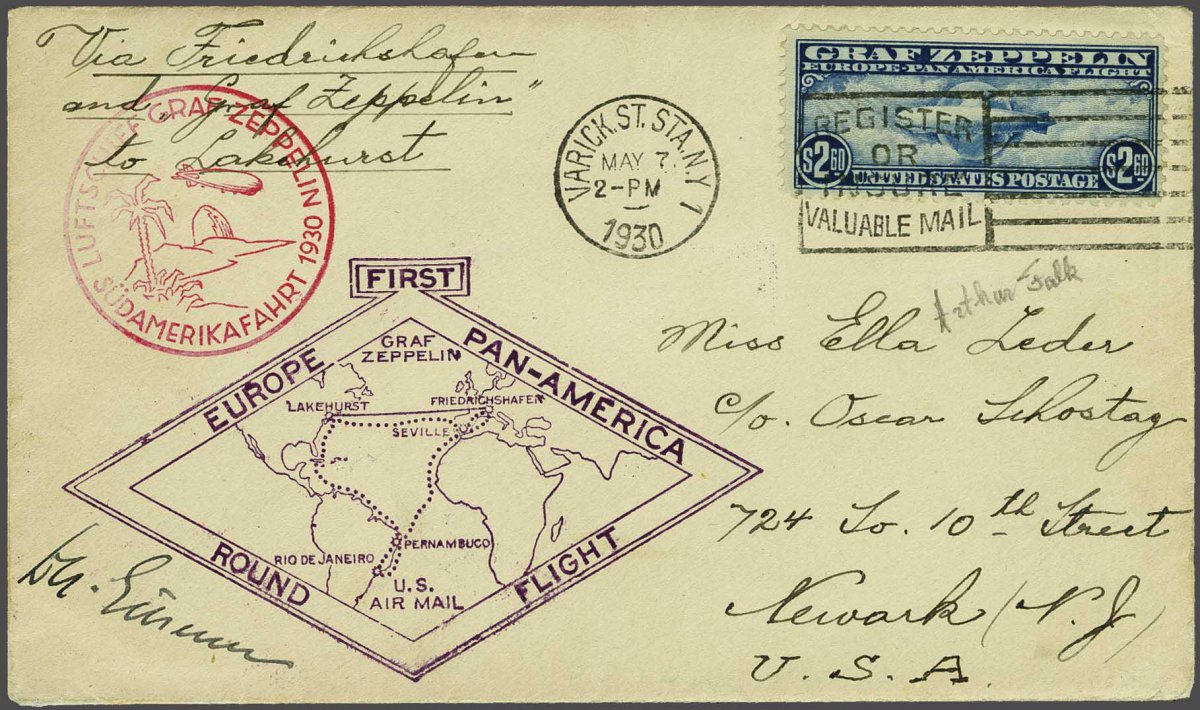 Via Friedrichshafen
and "Graf Zeppelin"
to Lakehurst
LUFTSCHIFF GRAF ZEPPELIN
SÜDAMERIKAFAHRT 1930
VARICK. ST. STA. N.Y. 1
MAY 7
2-PM
1930
GRAF ZEPPELIN
EUROPE-PAN AMERICA FLIGHT
REGISTER
OR
INSURE
VALUABLE MAIL
$2.60 UNITED STATES POSTAGE $2.60
Arthur Falk
Miss Ella Leder
c/o. Oscar Schostag
724 So. 10th Street
Newark (N. J)
U. S. A.
FIRST
EUROPE PAN-AMERICA
ROUND FLIGHT
GRAF
ZEPPELIN
LAKEHURST
FRIEDRICHSHAFEN
SEVILLE
PERNAMBUCO
RIO DE JANEIRO
U.S.
AIR MAIL